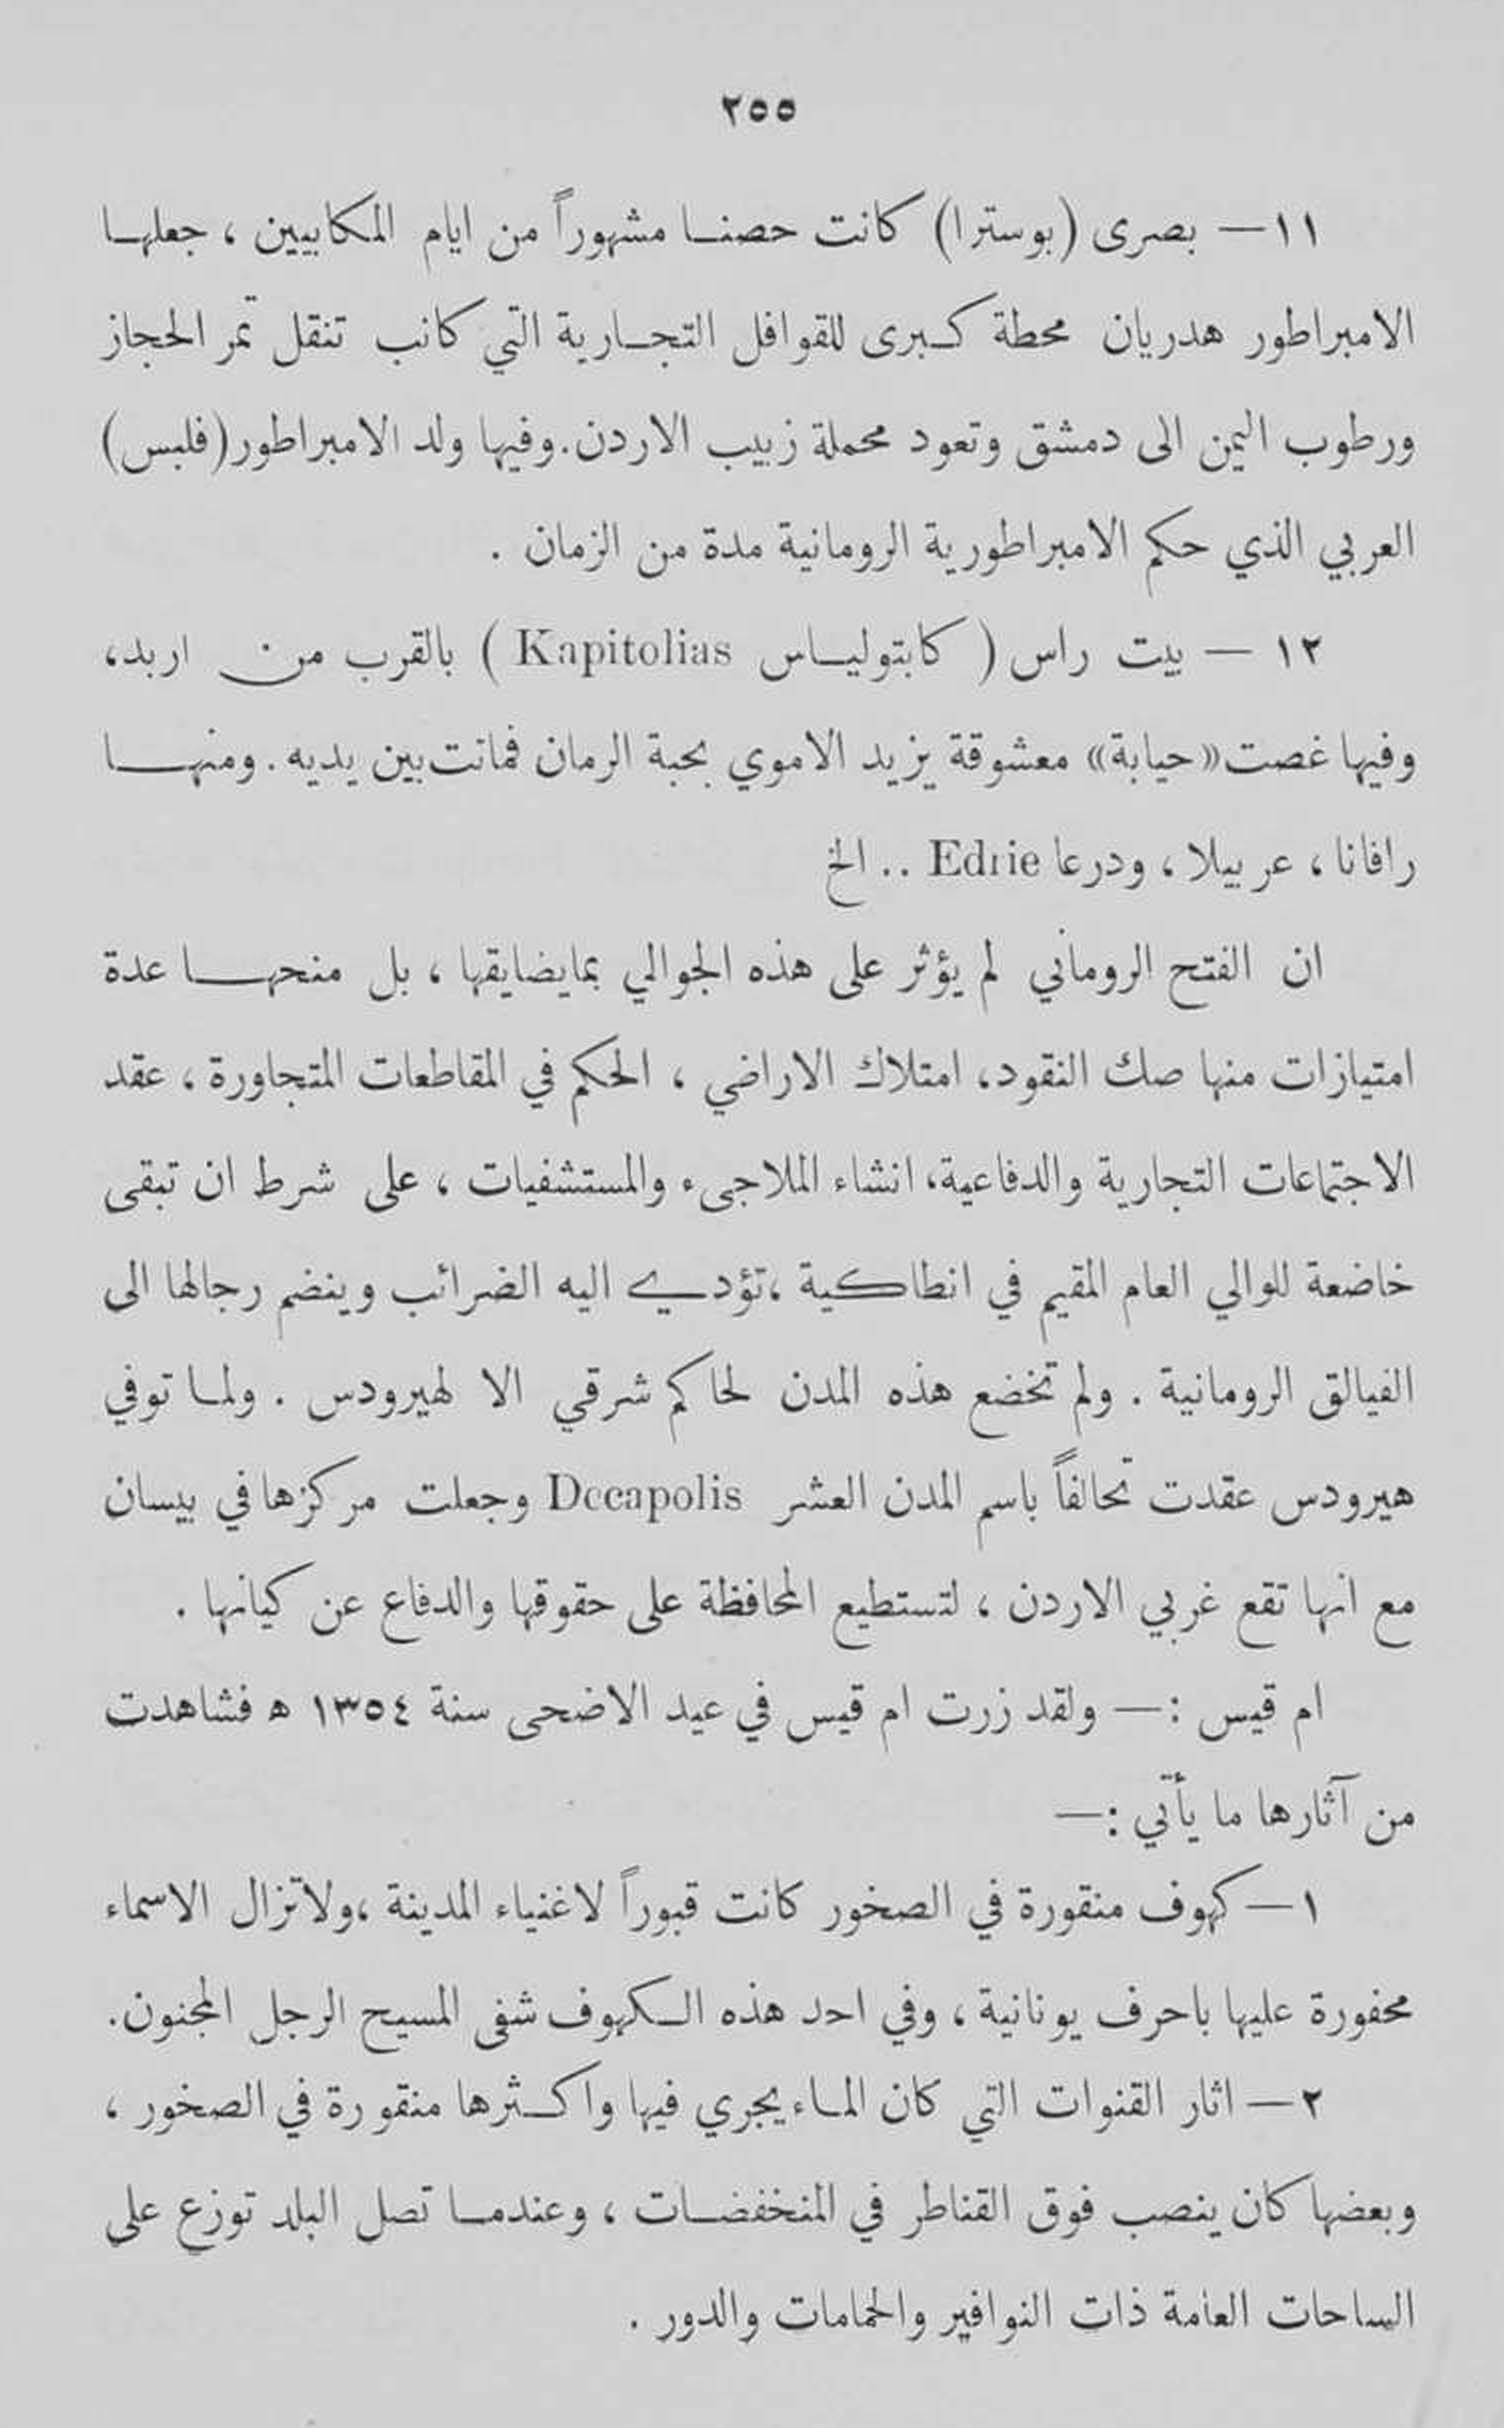 ٢٥٥
١١ — بصرى (بوسترا) كانت حصنا مشهوراً من ايام المكابيين ، جعلها
الامبراطور هدريان محطة كبرى للقوافل التجارية التي كانب تنقل تمر الحجاز
ورطوب اليمن الى دمشق وتعود محملة زبيب الاردن. وفيها ولد الامبراطور (فلبس)
العربي الذي حكم الامبراطورية الرومانية مدة من الزمان .
١٢ — بيت راس ( كابتولياس Kapitolias ) بالقرب من اربد،
وفيها غصت «حيابة» معشوقة يزيد الاموي بحبة الرمان فماتت بين يديه . ومنها
رافانا ، عربيلا ، ودرعا Edrie .. الخ
ان الفتح الروماني لم يؤثر على هذه الجوالي بما يضايقها ، بل منحها عدة
امتيازات منها صك النقود، امتلاك الاراضي ، الحكم في المقاطعات المتجاورة ، عقد
الاجتماعات التجارية والدفاعية، انشاء الملاجىء والمستشفيات ، على شرط ان تبقى
خاضعة للوالي العام المقيم في انطاكية ، تؤدي اليه الضرائب وينضم رجالها الى
الفيالق الرومانية . ولم تخضع هذه المدن لحاكم شرقي الا لهيرودس . ولما توفي
هيرودس عقدت تحالفاً باسم المدن العشر Decapolis وجعلت مركزها في بيسان
مع انها تقع غربي الاردن ، لتستطيع المحافظة على حقوقها والدفاع عن كيانها .
ام قيس : — ولقد زرت ام قيس في عيد الاضحى سنة ١٣٥٤ ه فشاهدت
من آثارها ما يأتي : —
١ — كهوف منقورة في الصخور كانت قبوراً لاغنياء المدينة ، ولا تزال الاسماء
محفورة عليها باحرف يونانية ، وفي احد هذه الكهوف شفى المسيح الرجل المجنون.
٢ — اثار القنوات التي كان الماء يجري فيها واكثرها منقورة في الصخور ،
وبعضها كان ينصب فوق القناطر في المنخفضات ، وعندما تصل البلد توزع على
الساحات العامة ذات النوافير والحمامات والدور .